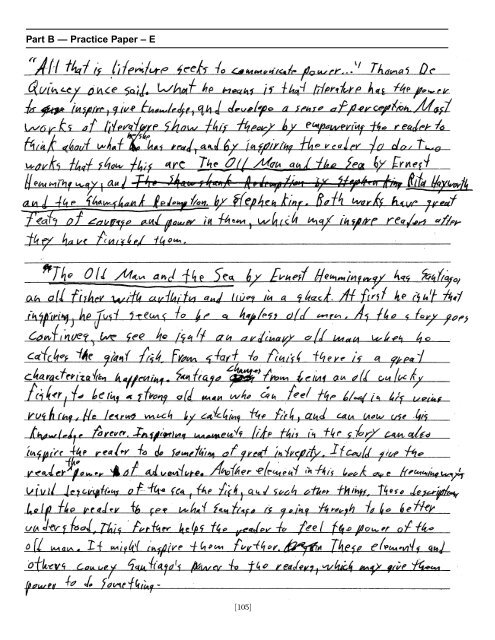 Part B — Practice Paper – E
"All that is literature seeks to communicate power..." Thomas De
Quincey once said. What he means is that literature has the power
to inspire, give knowledge, and develope a sense of perception. Most
works of literature show this theory by empowering the reader to
think about what he/she has read, and by inspiring the reader to do. Two
works that show this are The Old Man and the Sea by Ernest
Hemmingway, and The Shawshank Redemption by Stephen King Rita Hayworth
and the Shawshank Redemption by Stephen King. Both works have great
feats of courage and power in them, which may inspire readers after
they have finished them.
"The Old Man and the Sea by Ernest Hemmingway has Santiago,
an old fisher with arthitus and lives in a shack. At first he isn't that
inspiring, he just seems to be a hapless old man. As the story goes
continues, we see he isn't an ordinary old man when he
catches the giant fish. From start to finish there is a great
characterization happening. Santiago changes from being an old unlucky
fisher, to being a strong old man who can feel the blood in his veins
rushing. He learns much by catching the fish, and can now use his
knowledge forever. Inspiring moments like this in the story can also
inspire the reader to do something of great intrepity. It could give the
reader the power of adventure. Another element in this book are Hemmingway's
vivid descriptions of the sea, the fish, and such other things. These descriptions
help the reader to see what Santiago is going through to be better
understood. This further helps the reader to feel the power of the
old man. It might inspire them further. These elements and
others convey Santiago's power to the readers, which may give them
power to do something.
[105]